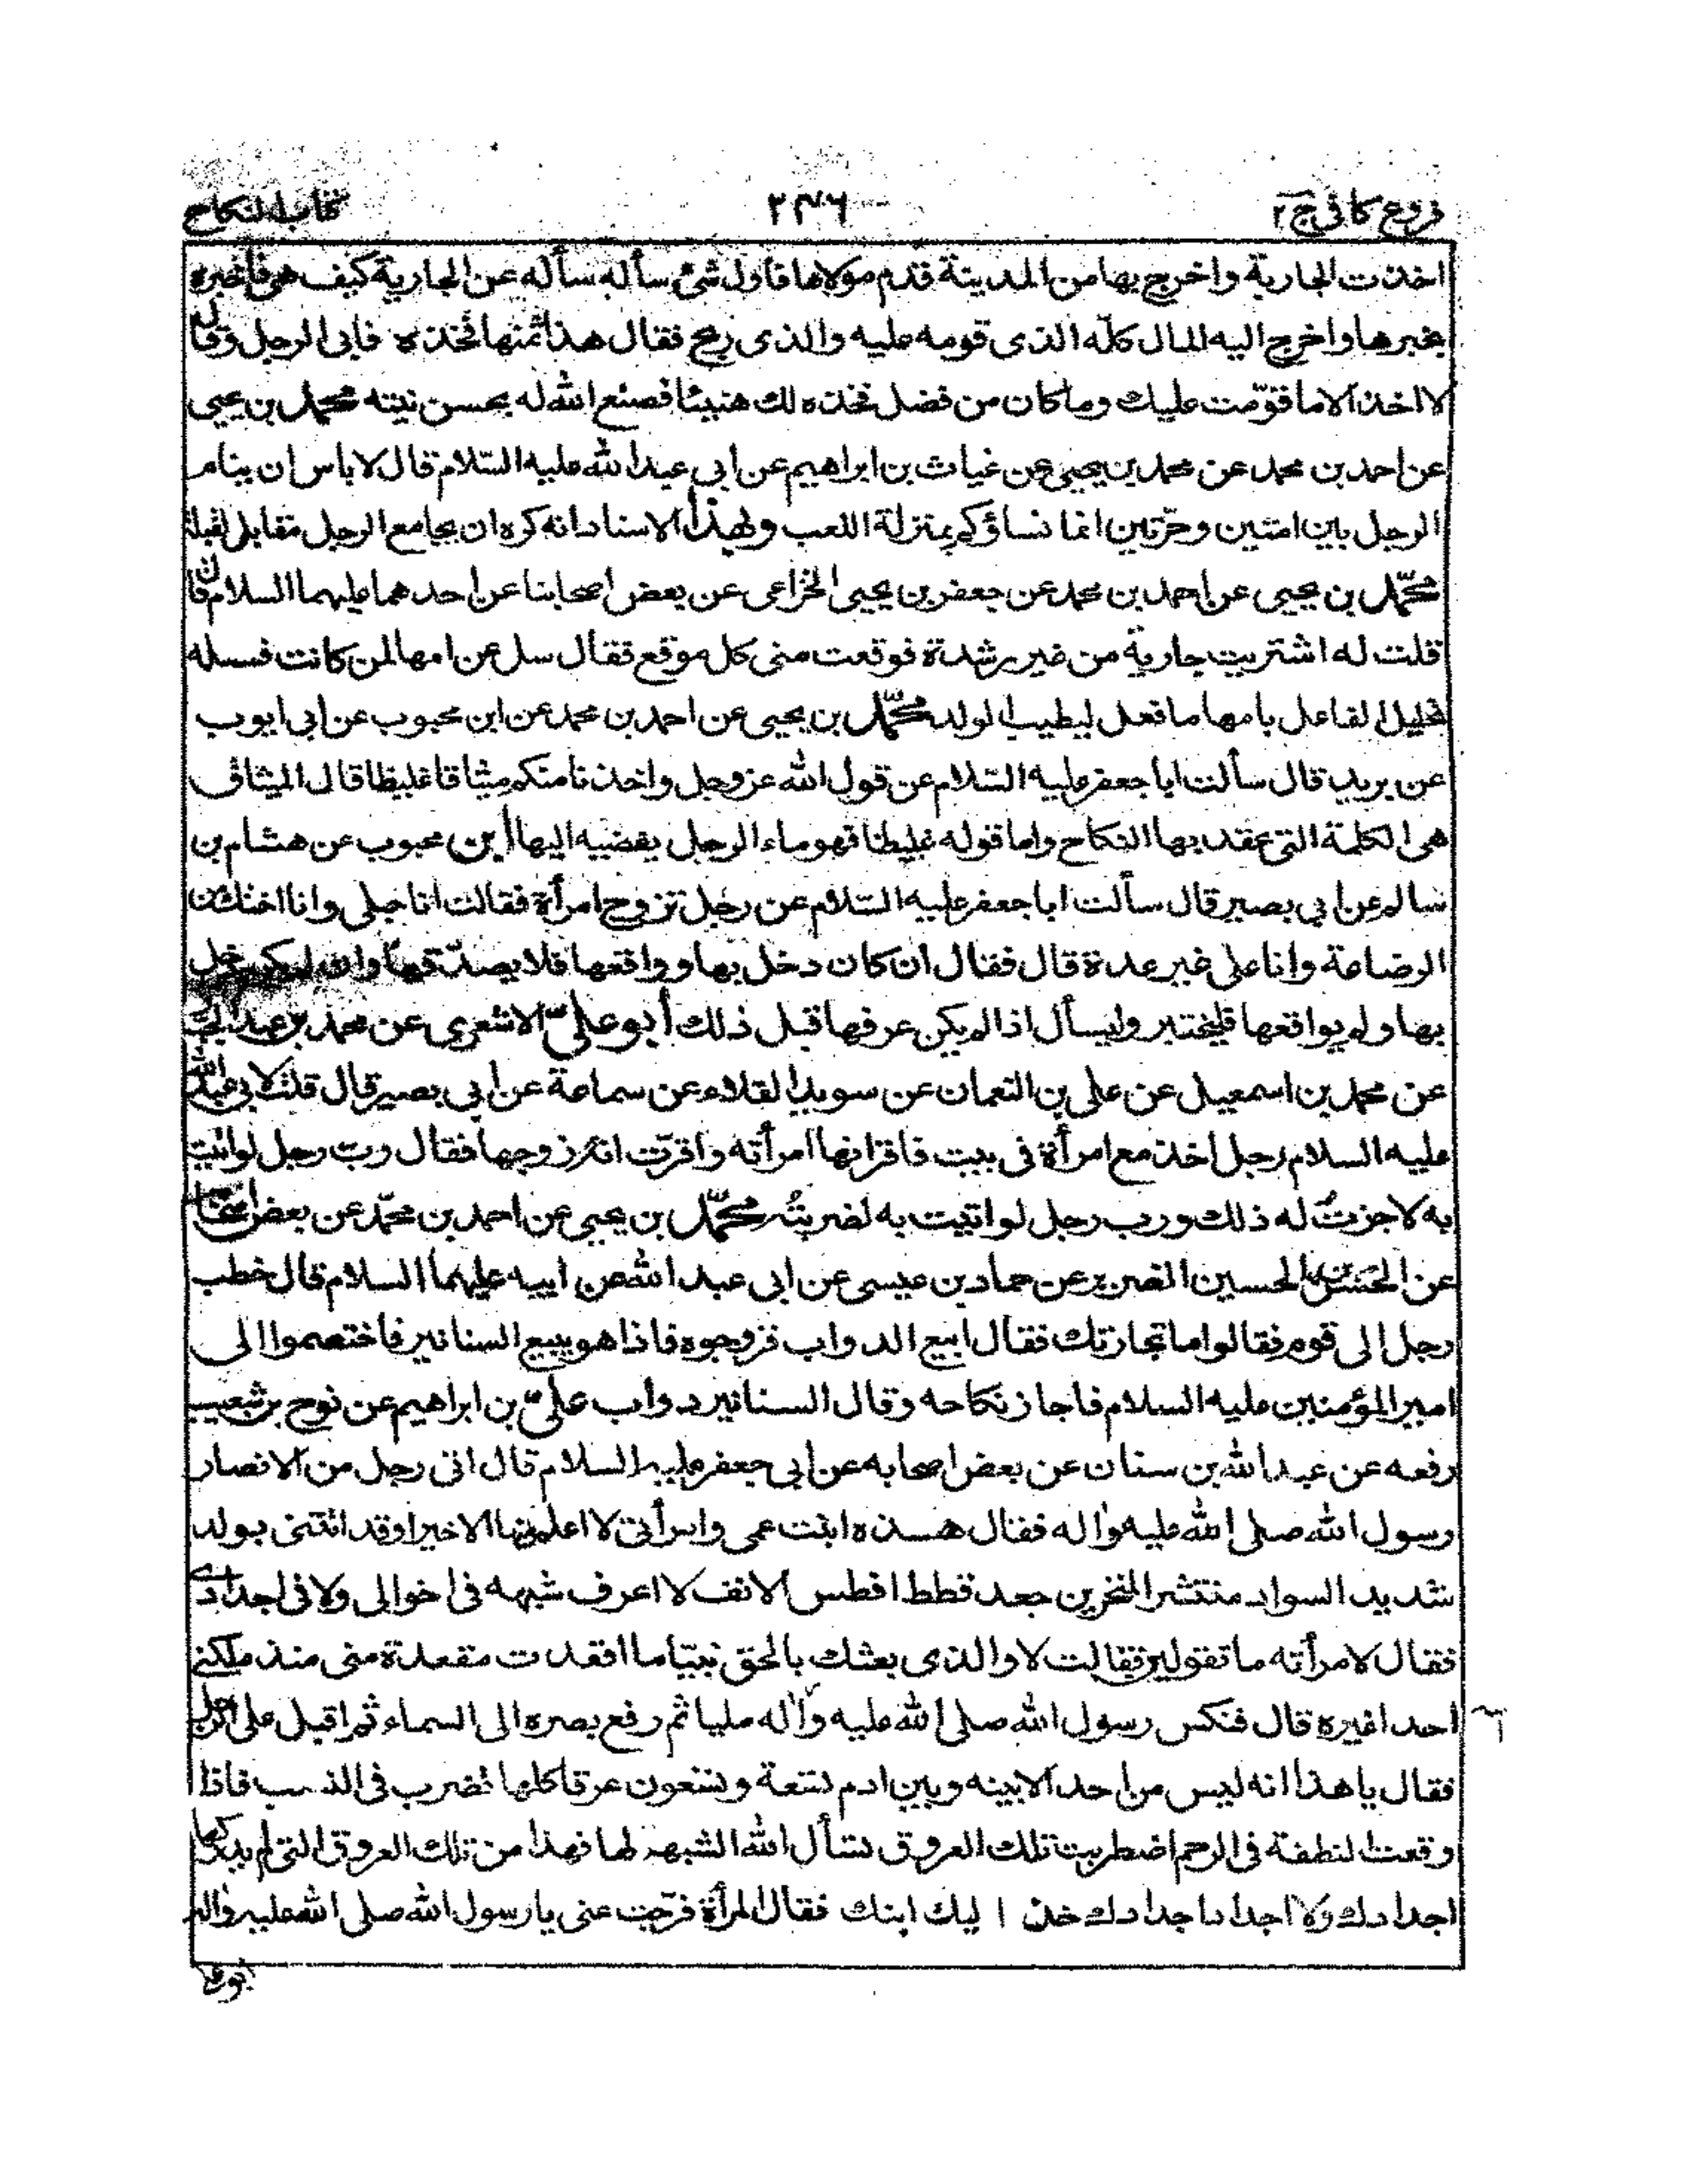 فروع كافى ج ٢
كتاب النكاح
اخذت الجارية واخرج بها من المدينة قدم مولاها فاول شئ سأله سأله عن الجارية كيف هى فاخبره
بخبرها واخرج اليه المال كلّه الذى قومه عليه والذى ربح فقال هذا ثمنها فخذه فابى الرجل وقال
لا اخذ الا ما قوّمت عليك وما كان من فضل فخذه لك هنيئا فصنع الله له بحسن نيته محمد بن يحيى
عن احمد بن محمد عن محمد بن يحيى عن غياث بن ابراهيم عن ابى عبد الله عليه السّلام قال لا باس ان ينام
الرجل باين امتين وحرّتين انما نساؤكم بمنزلة اللعب وبهذا الاسناد انه كره ان يجامع الرجل مقابل القبلة
محمّد بن يحيى عن احمد بن محمد عن جعفر بن يحيى الخزاعى عن بعض اصحابنا عن احدهما عليهما السلام قال
قلت له اشتريت جارية من غير رشدة فوقعت منى كل موقع فقال سل عن امها لمن كانت فسله
يحلل الفاعل بامها ما فعل ليطيب الولد محمّد بن يحيى عن احمد بن محمد عن ابن محبوب عن ابى ايوب
عن بريد قال سألت ابا جعفر عليه السّلام عن قول الله عز وجل واخذنا منكم ميثاقا غليظا قال الميثاق
هى الكلمة التى عقد بها النكاح واما قوله غليظا فهو ماء الرجل يفضيه اليها ابن محبوب عن هشام بن
سالم عن ابى بصير قال سألت ابا جعفر عليه السّلام عن رجل تزوج امرأة فقالت انا حبلى وانا اختك من
الرضاعة وانا على غير عدة قال فقال ان كان دخل بها وواقعها فلا يصدّقها وان لم يكن دخل
بها ولم يواقعها فليختبر وليسأل اذا لم يكن عرفها قبل ذلك أبو علىّ الاشعرى عن محمد بن عبد الجبار
عن محمد بن اسمعيل عن على بن النعمان عن سويد القلاء عن سماعة عن ابى بصير قال قلت لابى عبد الله
عليه السلام رجل اخذ مع امرأة فى بيت فاقر انها امرأته واقرّت انه زوجها فقال ربّ رجل لو اتيت
به لاجزت له ذلك ورب رجل لو اتيت به لضربتُه محمّد بن يحيى عن احمد بن محمّد عن بعض اصحابنا
عن الحسن بن الحسين الضرير عن حماد بن عيسى عن ابى عبد الله عن ابيه عليهما السلام قال خطب
رجل الى قوم فقالوا ما تجارتك فقال ابيع الدواب فزوجوه فاذا هو يبيع السنانير فاختصموا الى
امير المؤمنين عليه السلام فاجاز نكاحه وقال السنانير دواب علىّ بن ابراهيم عن نوح بن شعيب
رفعه عن عبد الله بن سنان عن بعض اصحابه عن ابى جعفر عليه السلام قال اتى رجل من الانصار
رسول الله صلى الله عليه واله فقال هذه ابنت عمى وامرأتى لا اعلم منها الا خيرا وقد اتتنى بولد
شديد السواد منتشر المنخرين جعد قطط افطس الانف لا اعرف شبهه فى اخوالى ولا فى اجدادى
فقال لامرأته ما تقولين فقالت لا والذى بعثك بالحق نبيّا ما اقعدت مقعدة منى منذ ملكنى
احدا غيره قال فنكس رسول الله صلى الله عليه واله مليا ثم رفع بصره الى السماء ثم اقبل على الرجل
فقال يا هذا انه ليس من احد الا بينه وبين ادم تسعة وتسعون عرقا كلها تضرب فى النسب فاذا
وقعت النطفة فى الرحم اضطربت تلك العروق تسأل الله الشبهه لها فهذا من تلك العروق التى لم يدركها
اجدادك ولا اجداد اجدادك خذ اليك ابنك فقال المرأة فرّجت عنى يا رسول الله صلى الله عليه واله